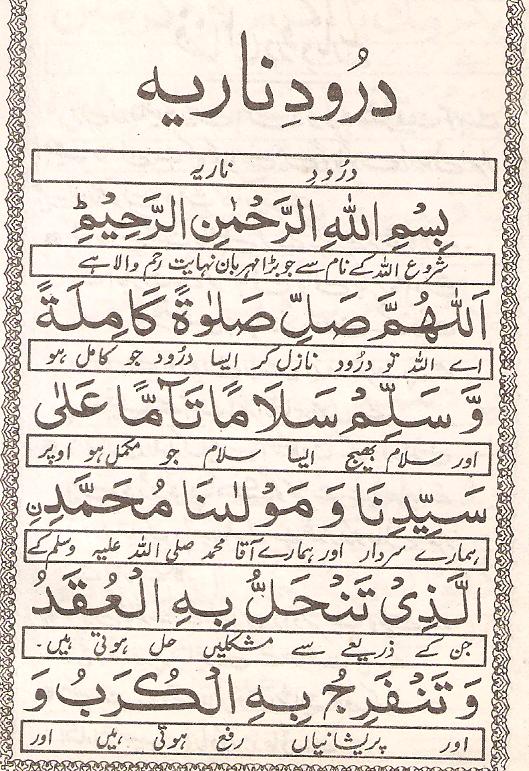 درُودِ ناریہ
درُودِ ناریہ
بِسْمِ اللهِ الرَّحْمٰنِ الرَّحِيْمِ ط
شروع اللہ کے نام سے جو بڑا مہربان نہایت رحم والا ہے
اَللّٰهُمَّ صَلِّ صَلٰوةً كَامِلَةً
اے اللہ تو درُود نازل کر ایسا درُود جو کامل ہو
وَّ سَلِّمْ سَلَامًا تَآمًّا عَلٰى
اور سلام بھیج ایسا سلام جو مکمل ہو اوپر
سَيِّدِنَا وَ مَوْلٰىنَا مُحَمَّدِنِ
ہمارے سردار اور ہمارے آقا محمد صلی اللہ علیہ وسلم کے
الَّذِىْ تَنْحَلُّ بِهِ الْعُقَدُ
جن کے ذریعے سے مشکلیں حل ہوتی ہیں۔
وَ تَنْفَرِجُ بِهِ الْكُرَبُ وَ
اور پریشانیاں رفع ہوتی ہیں اور